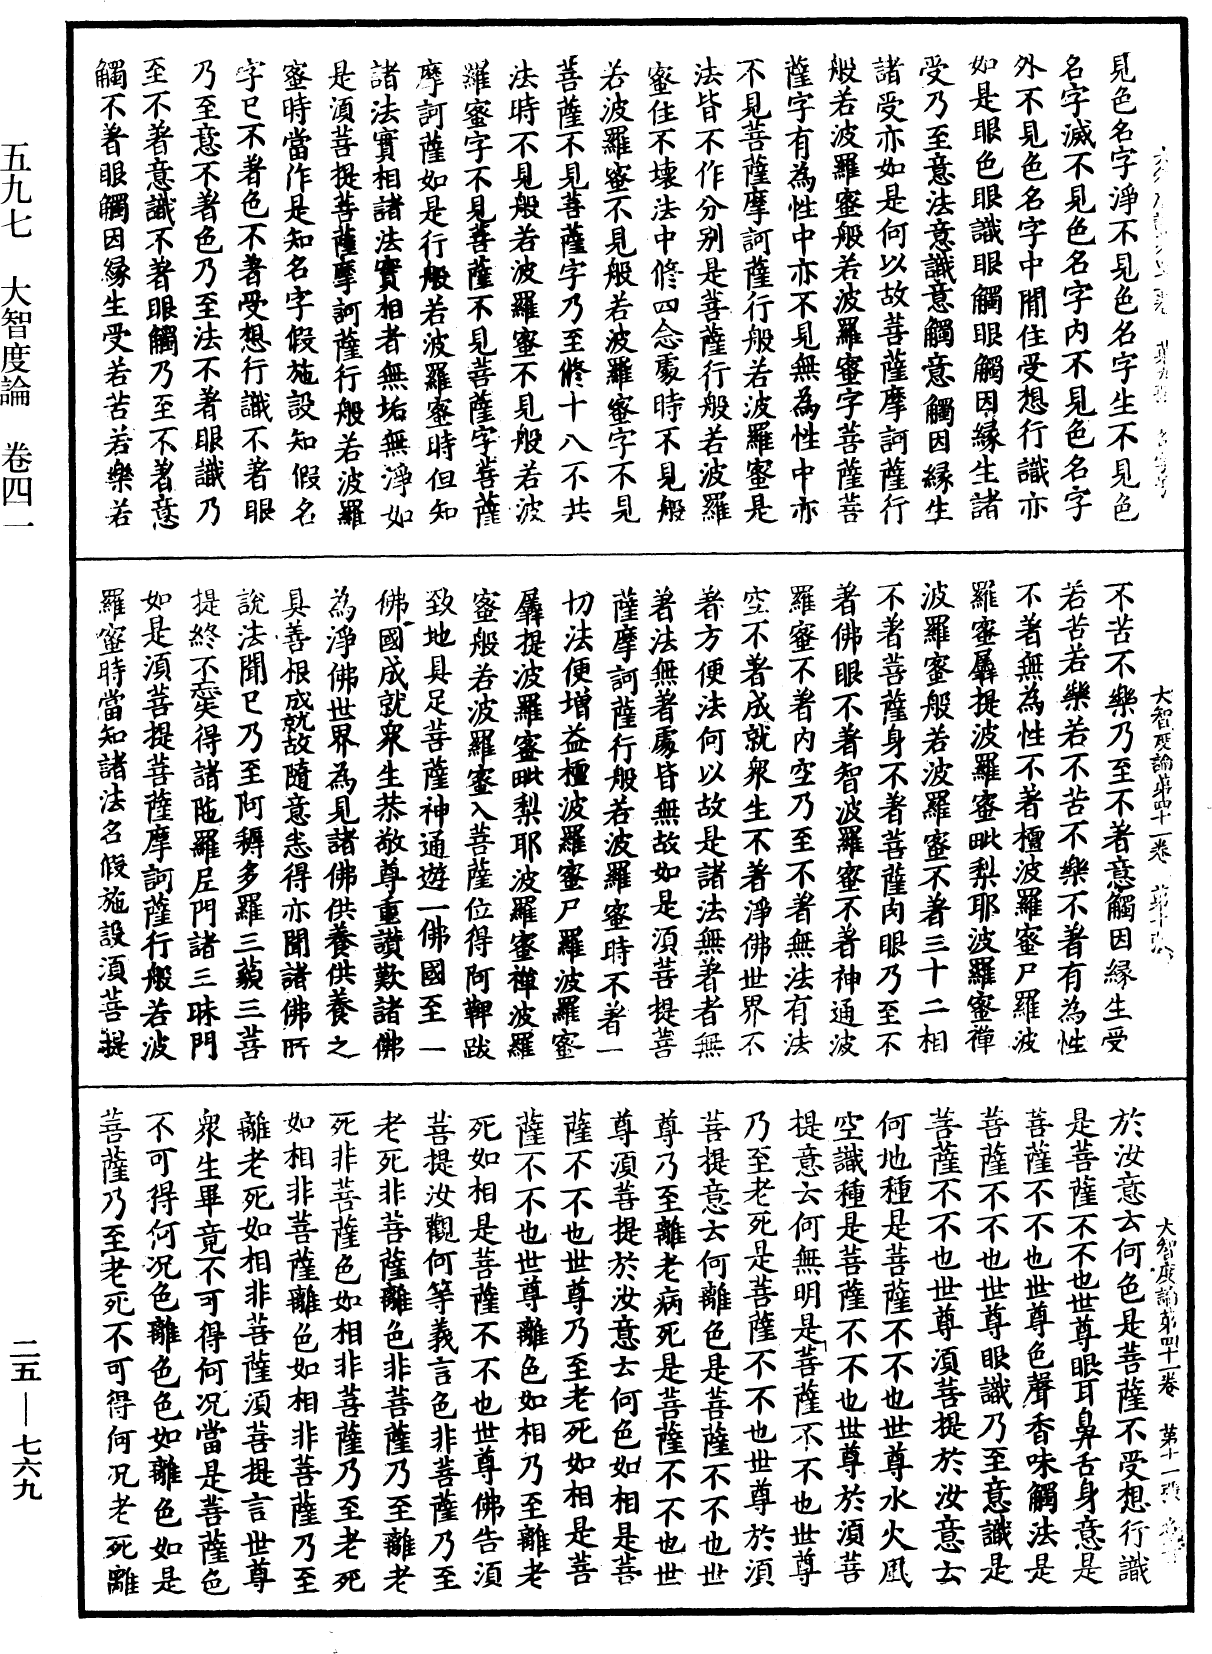 見色名字淨不見色名字生不見色
名字滅不見色名字內不見色名字
外不見色名字中間住受想行識亦
如是眼色眼識眼觸眼觸因緣生諸
受乃至意法意識意觸意觸因緣生
諸受亦如是何以故菩薩摩訶薩行
般若波羅蜜般若波羅蜜字菩薩菩
薩字有為性中亦不見無為性中亦
不見菩薩摩訶薩行般若波羅蜜是
法皆不作分別是菩薩行般若波羅
蜜住不壞法中修四念處時不見般
若波羅蜜不見般若波羅蜜字不見
菩薩不見菩薩字乃至修十八不共
法時不見般若波羅蜜不見般若波
羅蜜字不見菩薩不見菩薩字菩薩
摩訶薩如是行般若波羅蜜時但知
諸法實相諸法實相者無垢無淨如
是須菩提菩薩摩訶薩行般若波羅
蜜時當作是知名字假施設知假名
字已不著色不著受想行識不著眼
乃至意不著色乃至法不著眼識乃
至不著意識不著眼觸乃至不著意
觸不著眼觸因緣生受若苦若樂若
大智度論第四十一卷 第十張
不苦不樂乃至不著意觸因緣生受
若苦若樂若不苦不樂不著有為性
不著無為性不著檀波羅蜜尸羅波
羅蜜羼提波羅蜜毗梨耶波羅蜜禪
波羅蜜般若波羅蜜不著三十二相
不著菩薩身不著菩薩肉眼乃至不
著佛眼不著智波羅蜜不著神通波
羅蜜不著內空乃至不著無法有法
空不著成就眾生不著淨佛世界不
著方便法何以故是諸法無著者無
著法無著處皆無故如是須菩提菩
薩摩訶薩行般若波羅蜜時不著一
切法便增益檀波羅蜜尸羅波羅蜜
羼提波羅蜜毗梨耶波羅蜜禪波羅
蜜般若波羅蜜入菩薩位得阿鞞跋
致地具足菩薩神通遊一佛國至一
佛國成就眾生恭敬尊重讚歎諸佛
為淨佛世界為見諸佛供養供養之
具善根成就故隨意悉得亦聞諸佛所
說法聞已乃至阿耨多羅三藐三菩
提終不忘失得諸陁羅尼門諸三昧門
如是須菩提菩薩摩訶薩行般若波
羅蜜時當知諸法名假施設須菩提
大智度論第四十一卷 第十一張
於汝意云何色是菩薩不受想行識
是菩薩不不也世尊眼耳鼻舌身意是
菩薩不不也世尊色聲香味觸法是
菩薩不不也世尊眼識乃至意識是
菩薩不不也世尊須菩提於汝意云
何地種是菩薩不不也世尊水火風
空識種是菩薩不不也世尊於須菩
提意云何無明是菩薩不不也世尊
乃至老死是菩薩不不也世尊於須
菩提意云何離色是菩薩不不也世
尊乃至離老病死是菩薩不不也世
尊須菩提於汝意云何色如相是菩
薩不不也世尊乃至老死如相是菩
薩不不也世尊離色如相乃至離老
死如相是菩薩不不也世尊佛告須
菩提汝觀何等義言色非菩薩乃至
老死非菩薩離色非菩薩乃至離老
死非菩薩色如相非菩薩乃至老死
如相非菩薩離色如相非菩薩乃至
離老死如相非菩薩須菩提言世尊
眾生畢竟不可得何況當是菩薩色
不可得何況色離色色如離色如是
菩薩乃至老死不可得何況老死離
五九七 大智度論 卷四一
二五—七六九